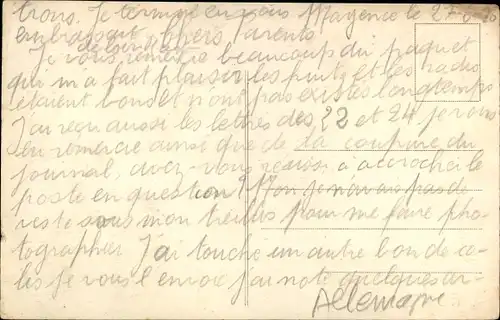 trons. Je termine en vous Mayence le 27
embrassant Chers Parents
de loin
Je vous remercie beaucoup du paquet
qui m'a fait plaisir les fruits et les radis
étaient bons et n'ont pas existés longtemps
J'ai reçu aussi les lettres des 22 et 24 je vous
en remercie ainsi que de la coupure du
journal, avez-vous réussi à accrocher le
poste en question? Non je n'avais pas de
veste sous mon treillis pour me faire pho-
tographier J'ai touché un autre bon de co-
lis je vous l'envoie j'ai noté quelques ar-
Allemagne